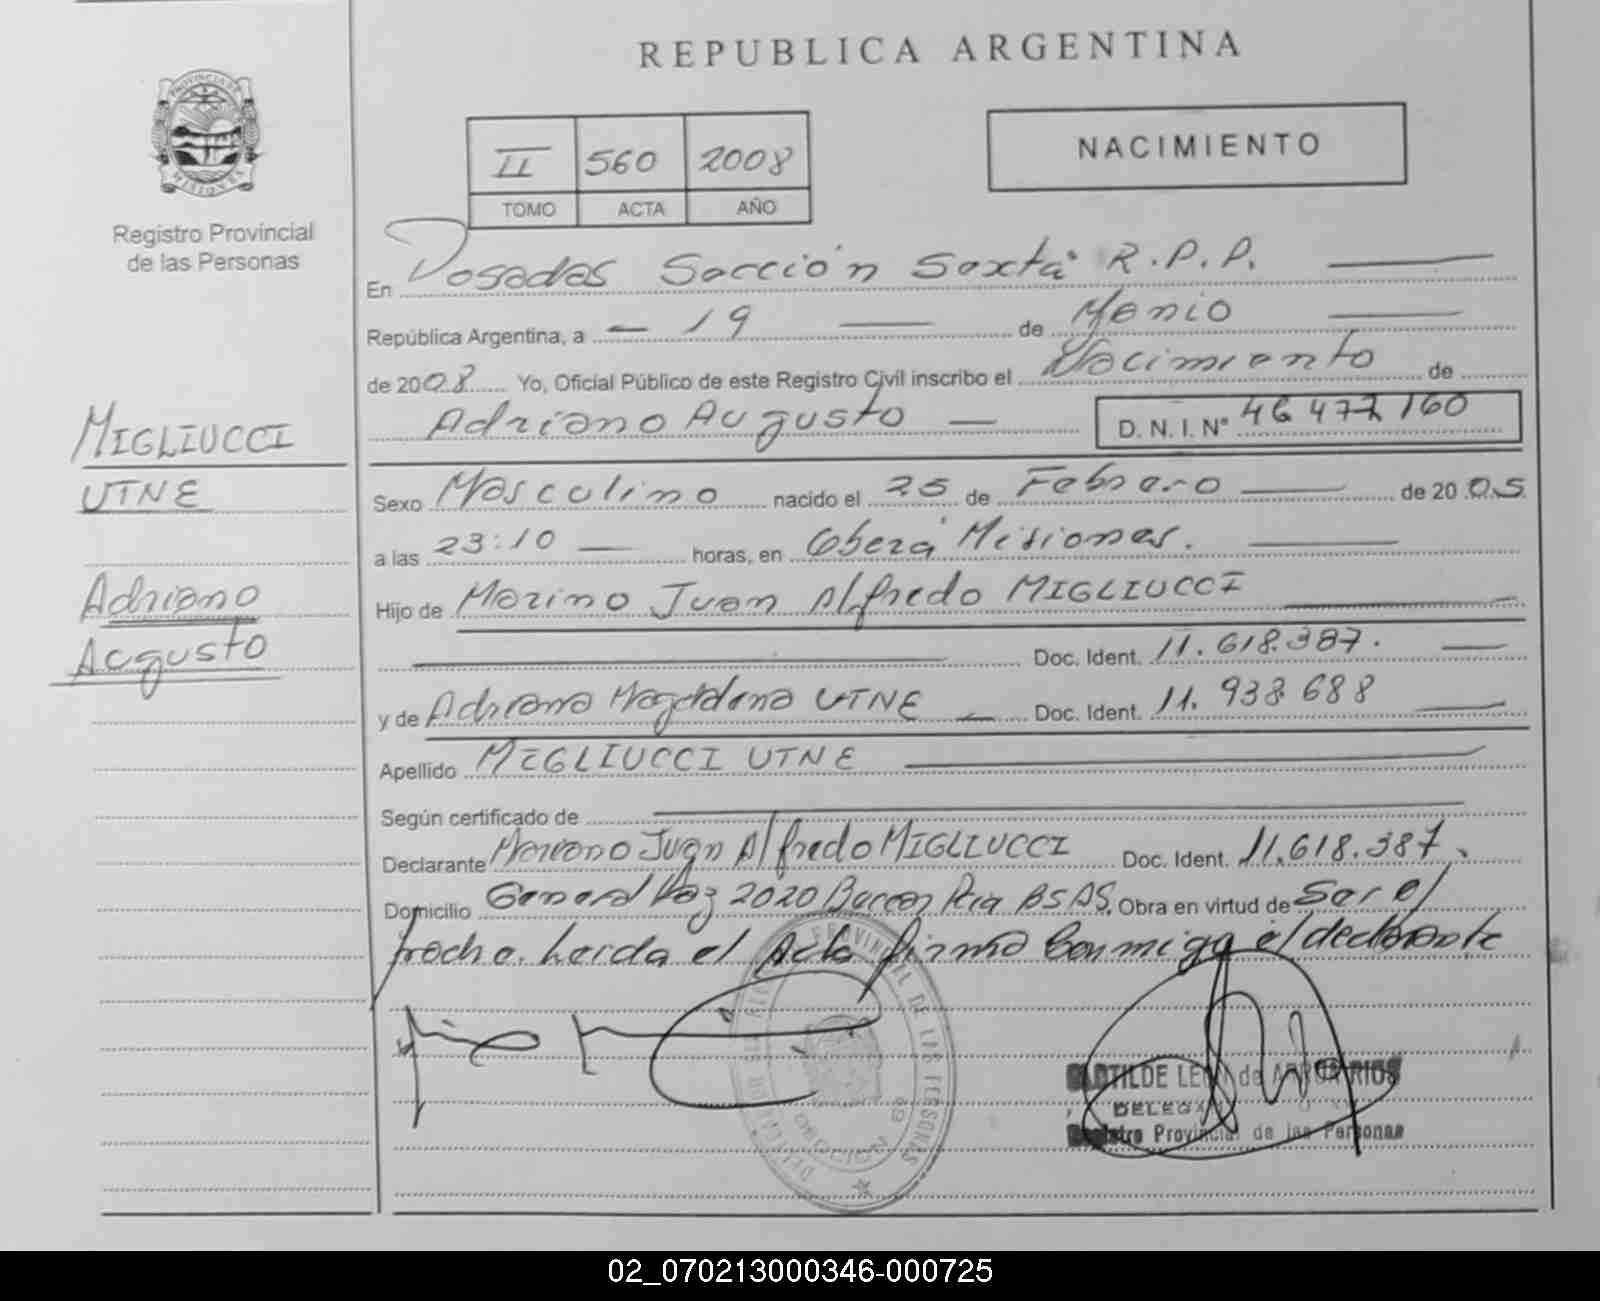 REPUBLICA ARGENTINA
PROVINCIA DE
MISIONES
Registro Provincial
de las Personas
II 560 2008
TOMO ACTA AÑO
NACIMIENTO
En Posadas Sección Sexta R.P.P.
República Argentina, a 19 de
de 2008 Yo, Oficial Público de este Registro Civil inscribo el Nacimiento de
Adriano Augusto D. N. I. N° 46 477 160
MIGLIUCCI
UTNE
Adriano
Augusto
Sexo Masculino nacido el 25 de Febrero de 2005
a las 23:10 horas, en Oberá Misiones.
Hijo de Marino Juan Alfredo MIGLIUCCI
Doc. Ident. 11.618.387.
y de Adriana Magdalena UTNE Doc. Ident. 11.938.688
Apellido MIGLIUCCI UTNE
Según certificado de
Declarante Juan Alfredo MIGLIUCCI Doc. Ident. 11.618.387.
Domicilio General Paz 2020 BS AS. Obra en virtud de Ser el
Leida el Acta firma Conmigo el declarante
CLOTILDE LEON de
Registro Provincial de las Personas
02_070213000346-000725